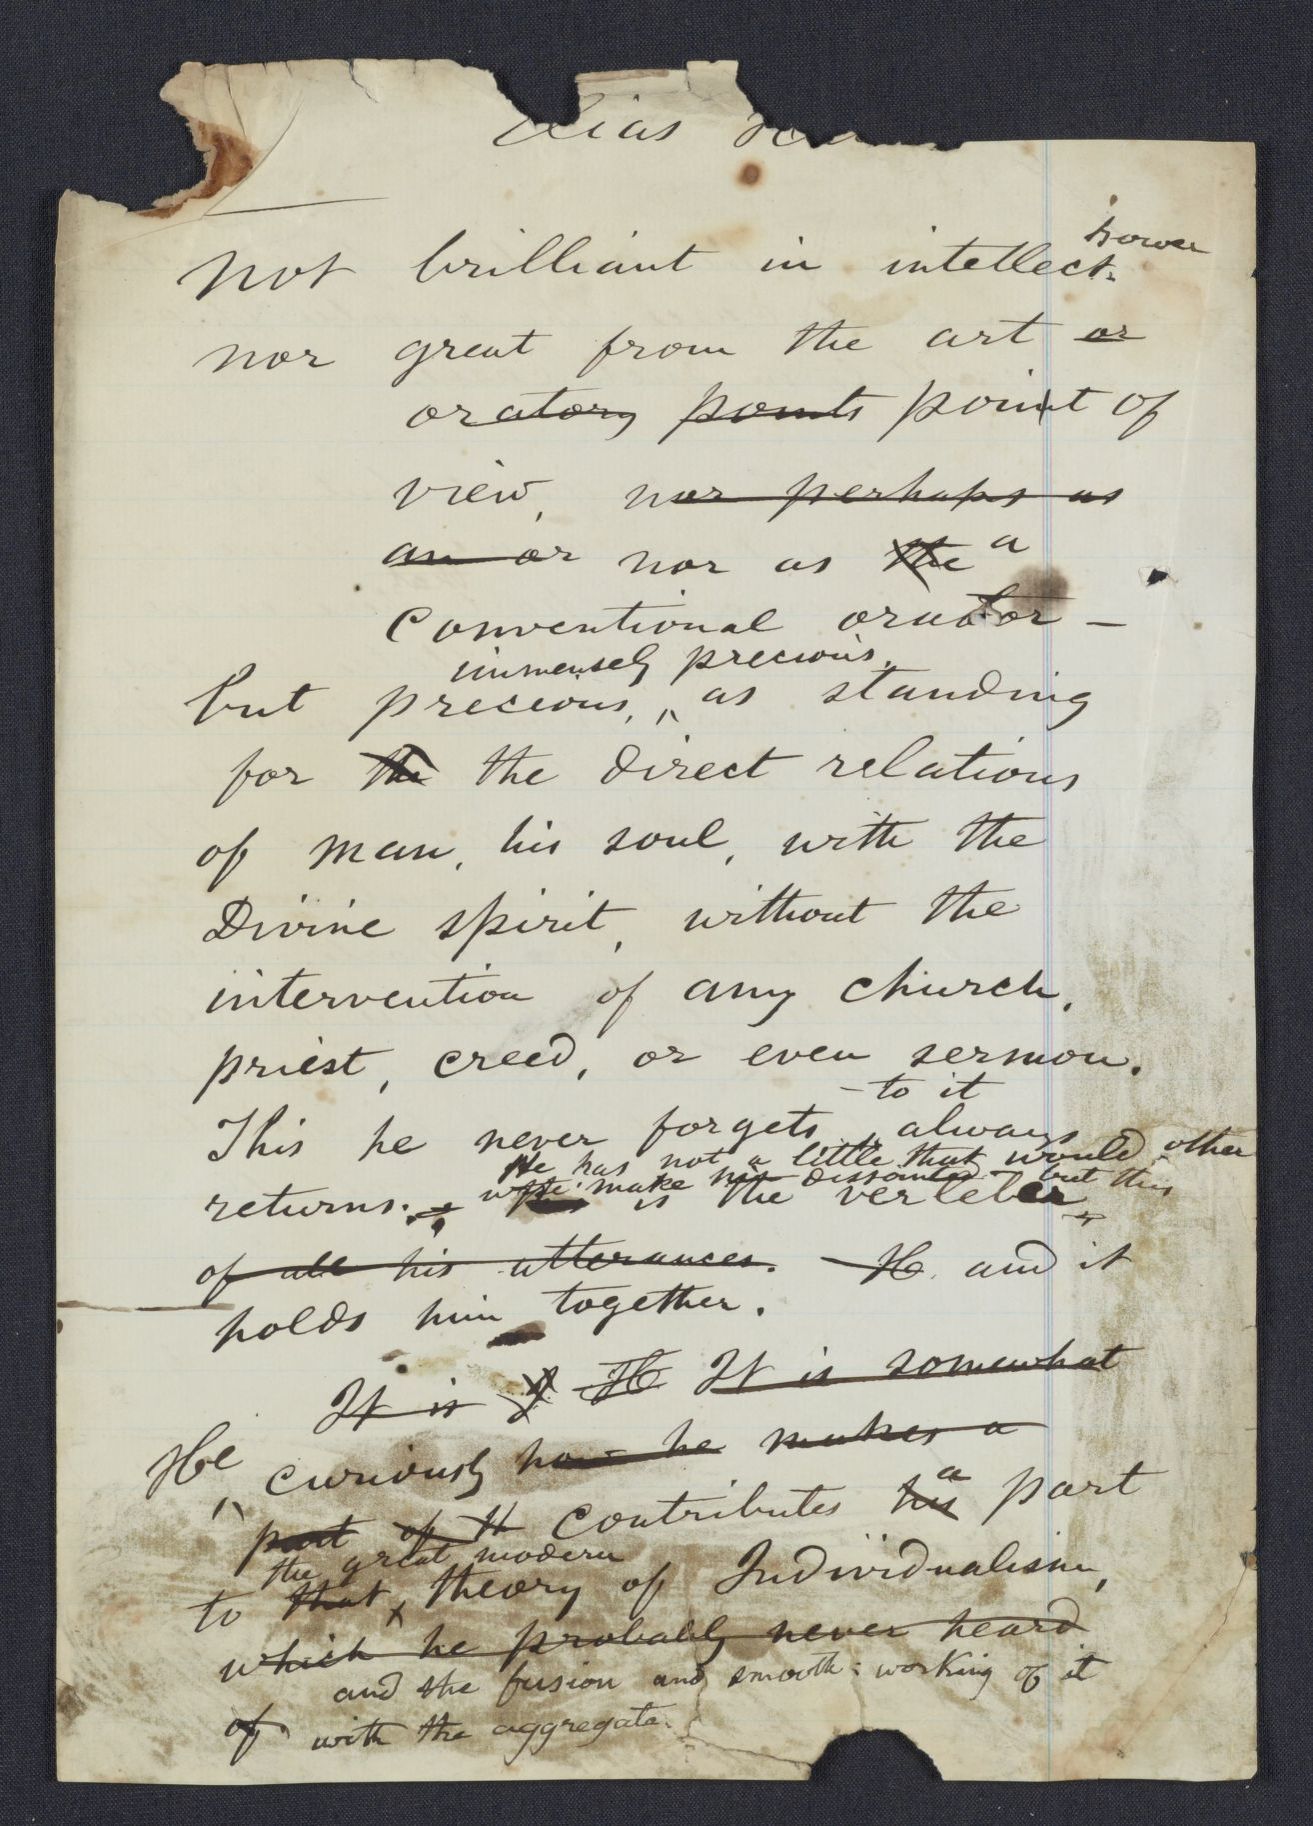 Elias
power
Not brilliant in intellect
nor great from the art or
oratory points point of
view, nor perhaps as
an or nor as the a
conventional orator —
immensely precious,
but precious, as standing
for the the direct relations
of man, his soul, with the
Divine spirit, without the
intervention of any church,
priest, creed, or even sermon.
— to it
This he never forgets, always
He has not a little that would other
wise make his dissonted — but this
returns. is the verteber
of all his utterances. — H and it
holds him together.
It is H It is somewhat
He curiously how he makes a
part of it contributes his a part
the great modern
to that theory of Individualism,
which he probably never heard
and the fusion and smooth working of it
of with the aggregate.